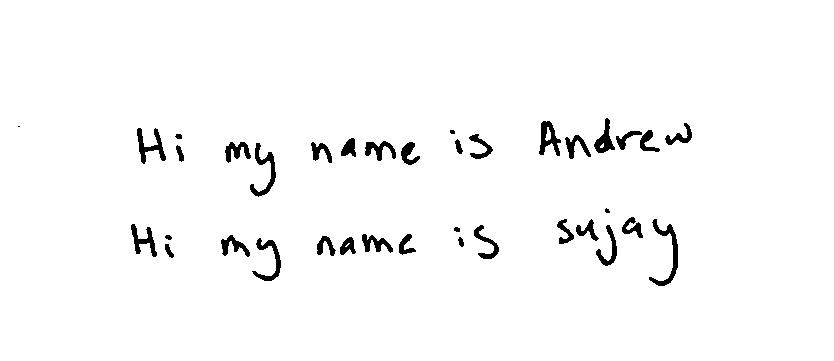 Hi my name is Andrew
Hi my name is sujay